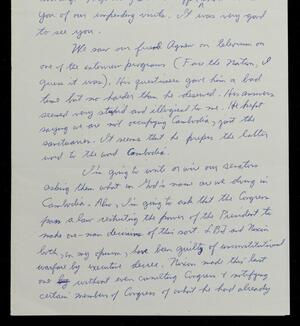 you of our impending visit. It was very good
to see you.
We saw our friend Agnew on television on
one of the interview programs (Face the Nation, I
guess it was). His questioners gave him a bad
time but no harder than he deserved. His answers
seemed very stupid and illogical to me. He kept
saying we are not occupying Cambodia; just the
sanctuaries. It seems that he prefers the latter
word to the word Cambodia.
I'm going to write or wire our senators
asking them what in God's name are we doing in
Cambodia. Also, I'm going to ask that the Congress
pass a law restricting the power of the President to
make one-man decisions of this sort. LBJ and Nixon
both, in my opinion, have been guilty of unconstitutional
warfare by executive decree. Nixon made this last
one without even consulting Congress & notifying
certain members of Congress of what he had already